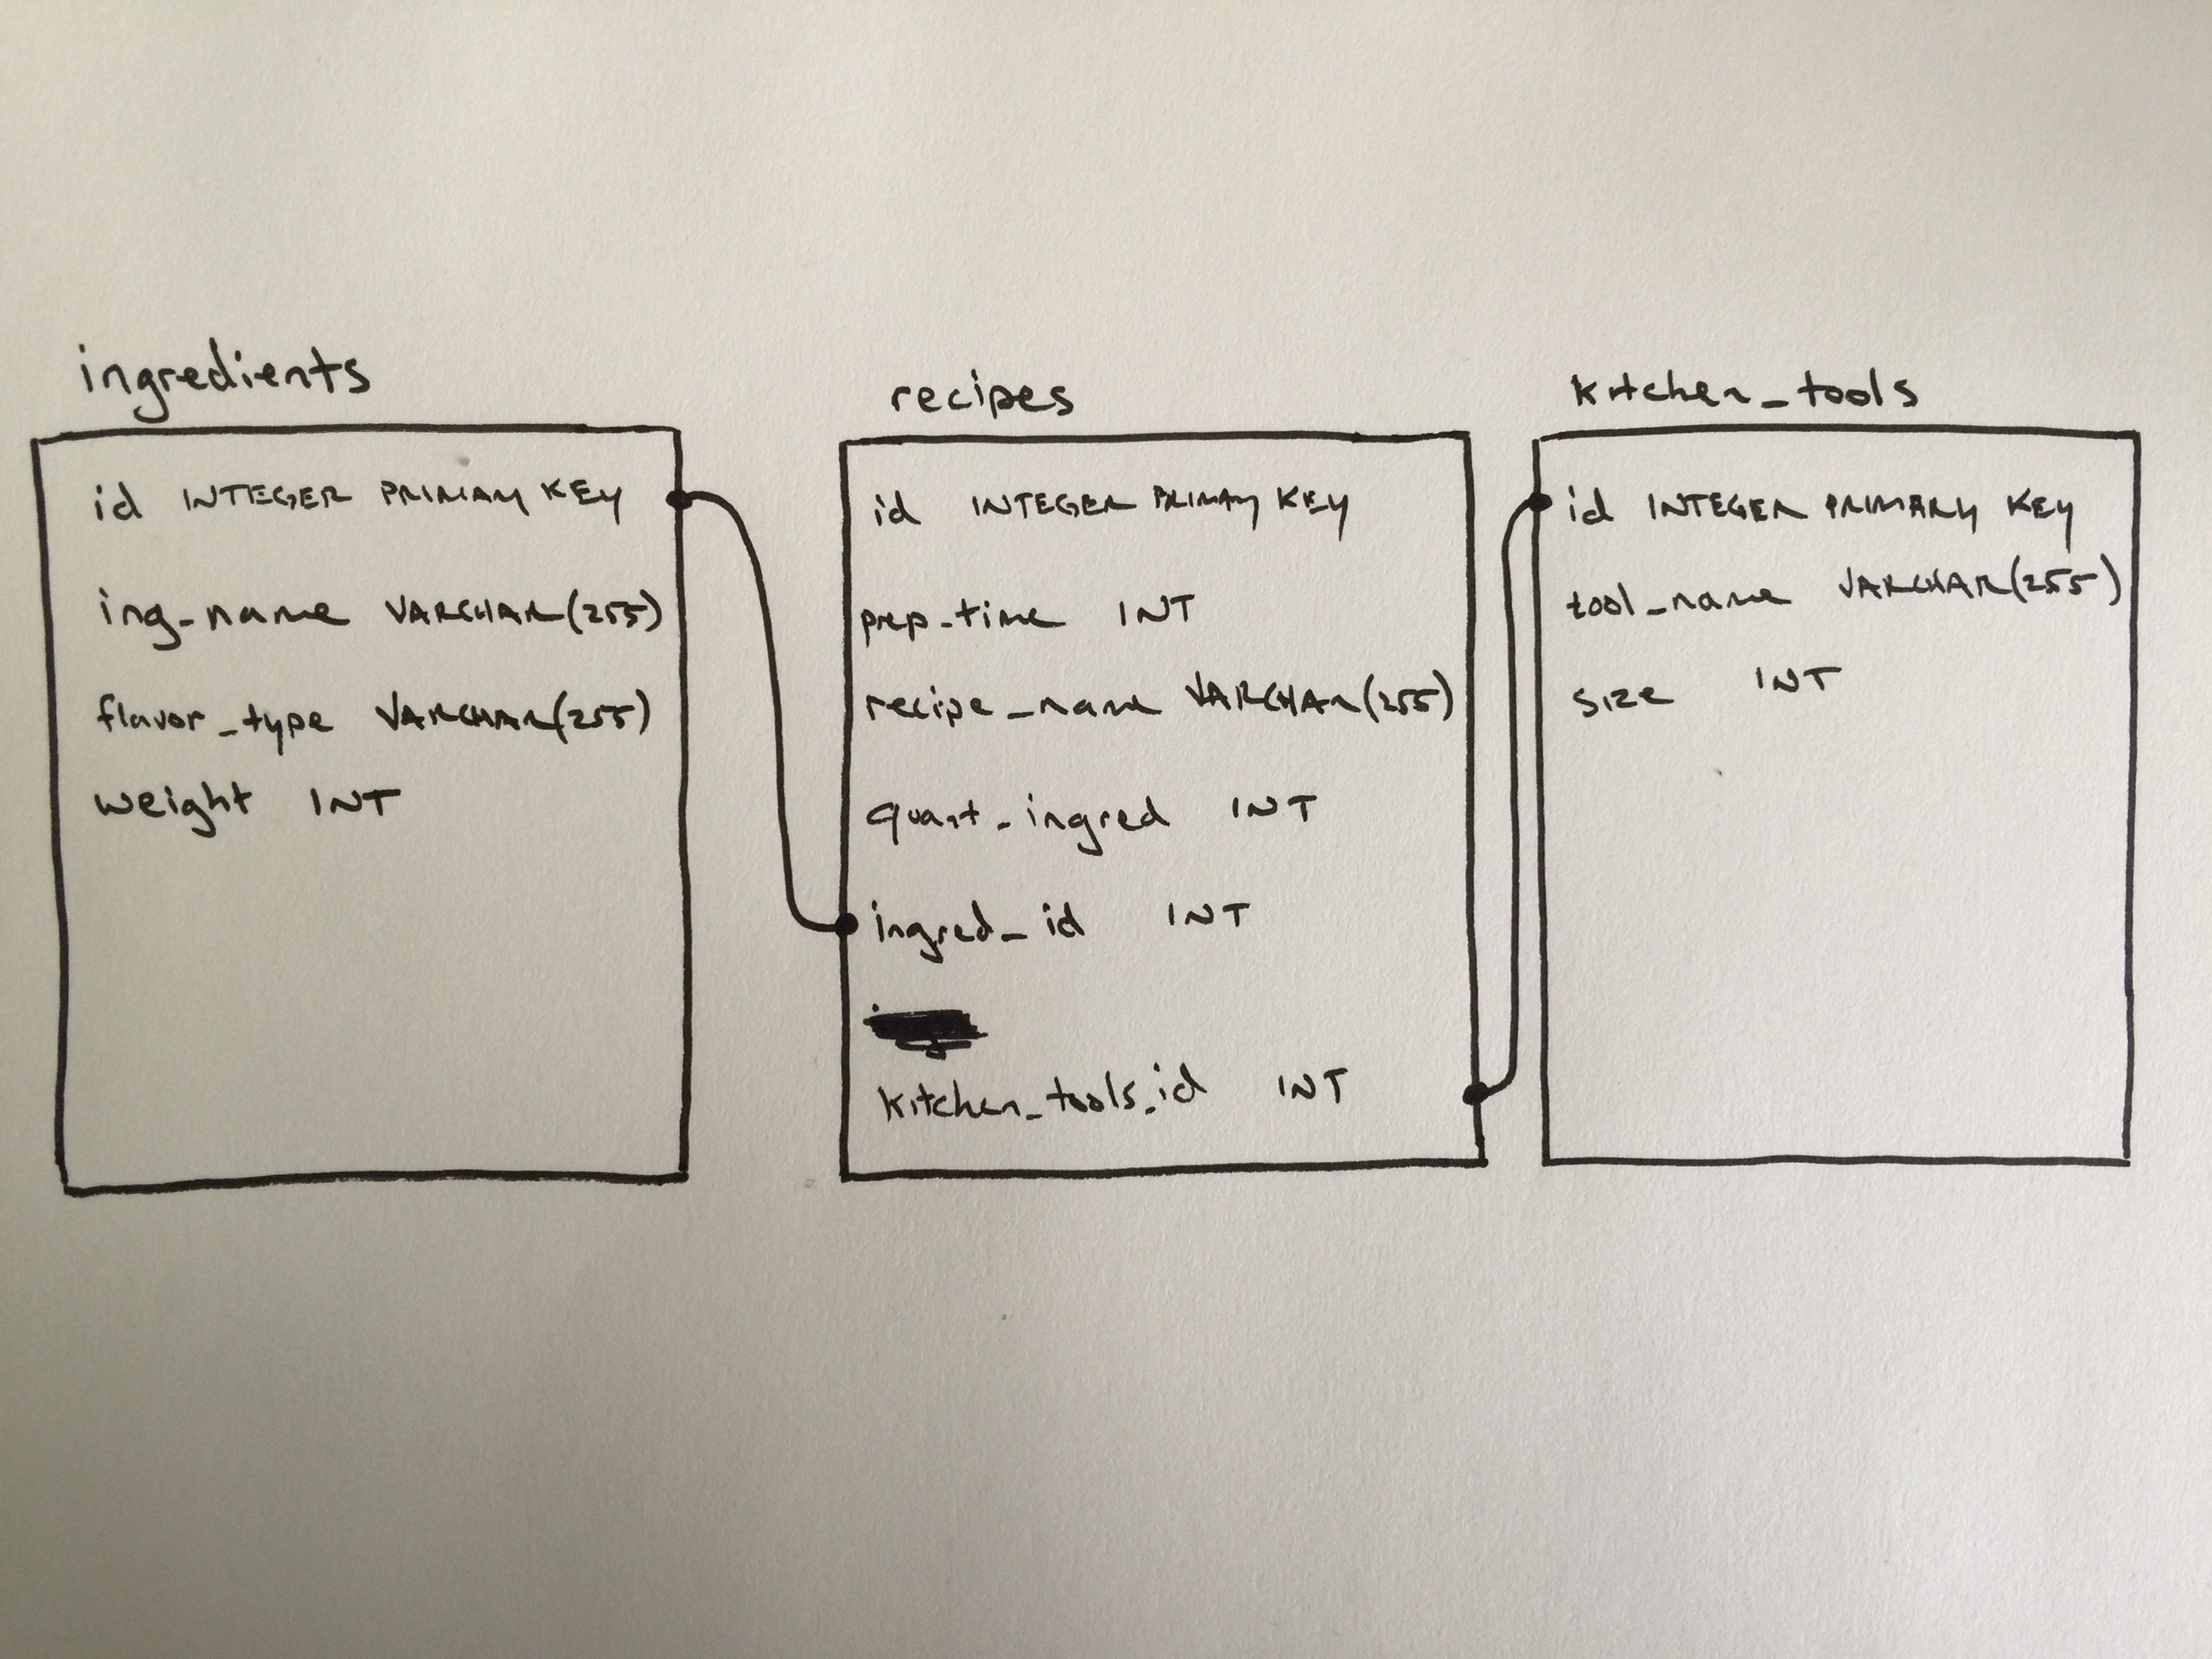 ingredients
id INTEGER PRIMARY KEY
ing_name VARCHAR(255)
flavor_type VARCHAR(255)
weight INT
recipes
id INTEGER PRIMARY KEY
prep_time INT
recipe_name VARCHAR(255)
quant_ingred INT
ingred_id INT
kitchen_tools_id INT
kitchen_tools
id INTEGER PRIMARY KEY
tool_name VARCHAR(255)
size INT